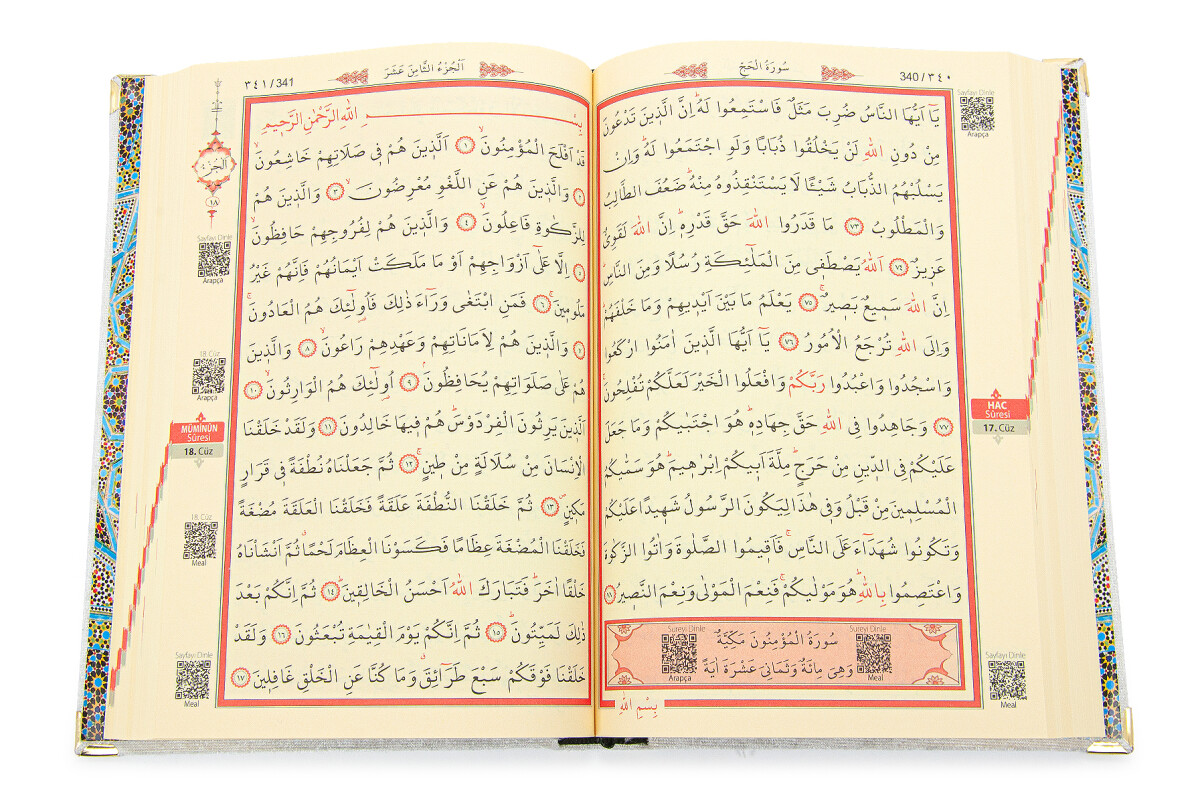 340/٣٤٠
سُورَةُ الْحَجِّ
Sayfayı Dinle
Arapça
يَٓا اَيُّهَا النَّاسُ ضُرِبَ مَثَلٌ فَاسْتَمِعُوا لَهُۜ اِنَّ الَّذ۪ينَ تَدْعُونَ
مِنْ دُونِ اللّٰهِ لَنْ يَخْلُقُوا ذُبَابًا وَلَوِ اجْتَمَعُوا لَهُۜ وَاِنْ
يَسْلُبْهُمُ الذُّبَابُ شَيْـًٔا لَا يَسْتَنْقِذُوهُ مِنْهُۜ ضَعُفَ الطَّالِبُ
وَالْمَطْلُوبُ ٧٣ مَا قَدَرُوا اللّٰهَ حَقَّ قَدْرِه۪ۜ اِنَّ اللّٰهَ لَقَوِيٌّ
عَز۪يزٌ ٧٤ اَللّٰهُ يَصْطَف۪ي مِنَ الْمَلٰٓئِكَةِ رُسُلًا وَمِنَ النَّاسِۜ
اِنَّ اللّٰهَ سَم۪يعٌ بَص۪يرٌۚ ٧٥ يَعْلَمُ مَا بَيْنَ اَيْد۪يهِمْ وَمَا خَلْفَهُمْۜ
وَاِلَى اللّٰهِ تُرْجَعُ الْاُمُورُ ٧٦ يَٓا اَيُّهَا الَّذ۪ينَ اٰمَنُوا ارْكَعُوا
وَاسْجُدُوا وَاعْبُدُوا رَبَّكُمْ وَافْعَلُوا الْخَيْرَ لَعَلَّكُمْ تُفْلِحُونَۚ
٧٧ وَجَاهِدُوا فِي اللّٰهِ حَقَّ جِهَادِه۪ۜ هُوَ اجْتَبٰيكُمْ وَمَا جَعَلَ
عَلَيْكُمْ فِي الدّ۪ينِ مِنْ حَرَجٍۜ مِلَّةَ اَب۪يكُمْ اِبْرٰه۪يمَۜ هُوَ سَمّٰيكُمُ
الْمُسْلِم۪ينَ مِنْ قَبْلُ وَف۪ي هٰذَا لِيَكُونَ الرَّسُولُ شَه۪يدًا عَلَيْكُمْ
وَتَكُونُوا شُهَدَٓاءَ عَلَى النَّاسِۚ فَاَق۪يمُوا الصَّلٰوةَ وَاٰتُوا الزَّكٰوةَ
وَاعْتَصِمُوا بِاللّٰهِۜ هُوَ مَوْلٰيكُمْۚ فَنِعْمَ الْمَوْلٰى وَنِعْمَ النَّص۪يرُ
Sureyi Dinle
Meal
سُورَةُ الْمُؤْمِنُونَ مَكِّيَّةٌ
وَهِيَ مِائَةٌ وَثَمَانِيَ عَشْرَةَ اٰيَةً
Sureyi Dinle
Arapça
بِسْمِ اللّٰهِ
HAC
Sûresi
17. Cüz
Sayfayı Dinle
Meal
اَلْجُزْءُ الثَّامِنَ عَشَرَ
٣٤١/341
اَلْجُزْءُ
١٨
Sayfayı Dinle
Arapça
بِسْمِ اللّٰهِ الرَّحْمٰنِ الرَّح۪يمِ
قَدْ اَفْلَحَ الْمُؤْمِنُونَۙ ١ اَلَّذ۪ينَ هُمْ ف۪ي صَلَاتِهِمْ خَاشِعُونَۙ
٢ وَالَّذ۪ينَ هُمْ عَنِ اللَّغْوِ مُعْرِضُونَۙ ٣ وَالَّذ۪ينَ هُمْ
لِلزَّكٰوةِ فَاعِلُونَۙ ٤ وَالَّذ۪ينَ هُمْ لِفُرُوجِهِمْ حَافِظُونَۙ
٥ اِلَّا عَلٰٓى اَزْوَاجِهِمْ اَوْ مَا مَلَكَتْ اَيْمَانُهُمْ فَاِنَّهُمْ غَيْرُ
مَلُوم۪ينَۚ ٦ فَمَنِ ابْتَغٰى وَرَٓاءَ ذٰلِكَ فَاُو۬لٰٓئِكَ هُمُ الْعَادُونَۚ
٧ وَالَّذ۪ينَ هُمْ لِاَمَانَاتِهِمْ وَعَهْدِهِمْ رَاعُونَۙ ٨ وَالَّذ۪ينَ
هُمْ عَلٰى صَلَوَاتِهِمْ يُحَافِظُونَۢ ٩ اُو۬لٰٓئِكَ هُمُ الْوَارِثُونَۙ ١٠
اَلَّذ۪ينَ يَرِثُونَ الْفِرْدَوْسَۜ هُمْ ف۪يهَا خَالِدُونَ ١١ وَلَقَدْ خَلَقْنَا
الْاِنْسَانَ مِنْ سُلَالَةٍ مِنْ ط۪ينٍۚ ١٢ ثُمَّ جَعَلْنَاهُ نُطْفَةً ف۪ي قَرَارٍ
مَك۪ينٍۖ ١٣ ثُمَّ خَلَقْنَا النُّطْفَةَ عَلَقَةً فَخَلَقْنَا الْعَلَقَةَ مُضْغَةً
فَخَلَقْنَا الْمُضْغَةَ عِظَامًا فَكَسَوْنَا الْعِظَامَ لَحْمًاۗ ثُمَّ اَنْشَاْنَاهُ
خَلْقًا اٰخَرَۜ فَتَبَارَكَ اللّٰهُ اَحْسَنُ الْخَالِق۪ينَۜ ١٤ ثُمَّ اِنَّكُمْ بَعْدَ
ذٰلِكَ لَمَيِّتُونَۜ ١٥ ثُمَّ اِنَّكُمْ يَوْمَ الْقِيٰمَةِ تُبْعَثُونَ ١٦ وَلَقَدْ
خَلَقْنَا فَوْقَكُمْ سَبْعَ طَرَٓائِقَۗ وَمَا كُنَّا عَنِ الْخَلْقِ غَافِل۪ينَ ١٧
18. Cüz
Arapça
MÜMİNÛN
Sûresi
18. Cüz
18. Cüz
Meal
Sayfayı Dinle
Meal